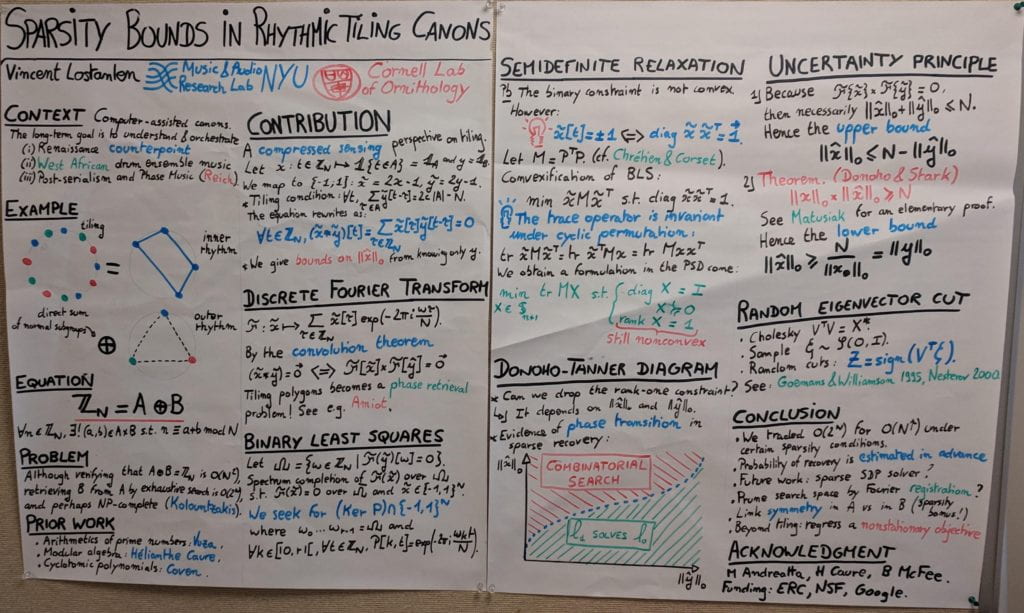 SPARSITY BOUNDS IN RHYTHMIC TILING CANONS
Vincent Lostanlen Music & Audio Research Lab NYU Cornell Lab of Ornithology
CONTEXT Computer-assisted canons.
The long-term goal is to understand & orchestrate
(i) Renaissance counterpoint
(ii) West African drum ensemble music
(iii) Post-serialism and Phase Music (Reich)
EXAMPLE
tiling
=
inner rhythm
direct sum
of normal subgroups
⊕
outer rhythm
EQUATION
ℤ_N = A ⊕ B
∀n∈ℤ_N, ∃!(a,b)∈A×B s.t. n ≡ a+b mod N
PROBLEM
Although verifying that A⊕B=ℤ_N is
retrieving B from A by exhaustive search is
and perhaps NP-complete (Kolountzakis).
PRIOR WORK
. Arithmetics of prime numbers: Vuza.
. Modular algebra: Hélianthe Caure,
. Cyclotomic polynomials: Coven.
CONTRIBUTION
A compressed sensing perspective on tiling.
Let x: t∈ℤ_N ↦ 1{t∈A} = 1_A and y=1_B.
We map to {-1,1}: x̃ = 2x-1, ỹ = 2y-1.
* Tiling condition:
The equation rewrites as:
∀t∈ℤ_N, (x̃*ỹ)[t] = Σ x̃[τ]ỹ[t-τ]=0
τ∈ℤ_N
* We give bounds on ||x̃||₀ from knowing only y.
DISCRETE FOURIER TRANSFORM
F: x̃ ↦ Σ x̃[τ] exp(-2πi ωτ/N).
τ∈ℤ_N
By the convolution theorem
(x̃*ỹ)=0⃗ ⟺ F[x̃]×F[ỹ] = 0⃗
Tiling polygons becomes a phase retrieval
problem! See e.g. Amiot.
BINARY LEAST SQUARES
Let Ω = {ω∈ℤ_N | F(ỹ)[ω] = 0}.
Spectrum completion of F(x̃) over Ω
s.t. F(x̃)=0 over Ω and x̃∈{-1,1}^N
We seek for (Ker P)∩{-1,1}^N
where ω₀...ω_{r-1}=Ω and
∀k∈[[0,r[[, ∀t∈ℤ_N, P[k,t]=exp(-2πi ω_k t/N)
SEMIDEFINITE RELAXATION
Pb The binary constraint is not convex.
However:
x̃[t]=±1 ⟺ diag x̃ x̃ᵀ = 1⃗
Let M = PᵀP. (cf. Chrétien & Corset).
Convexification of BLS:
min x̃Mx̃ᵀ s.t. diag x̃x̃ᵀ = 1.
The trace operator is invariant
under cyclic permutation:
tr x̃Mx̃ᵀ = tr x̃ᵀMx = tr Mxxᵀ
We obtain a formulation in the PSD cone:
min tr MX s.t. { diag X = I
X∈S_{n+1} X ≽ 0
rank X = 1
still nonconvex
DONOHO-TANNER DIAGRAM
* Can we drop the rank-one constraint?
↳ It depends on ||x̂||₀ and ||ŷ||₀.
* Evidence of phase transition in
sparse recovery:
||x̂||₀
COMBINATORIAL
SEARCH
l₁ SOLVES l₀
||ŷ||₀
UNCERTAINTY PRINCIPLE
1) Because F{x̃}×F{ỹ}=0,
then necessarily ||x̂||₀+||ŷ||₀ ≤ N.
Hence the upper bound
||x̂||₀ ≤ N-||ŷ||₀
2) Theorem. (Donoho & Stark)
||x||₀ × ||x̂||₀ ≥ N
See Matusiak for an elementary proof.
Hence the lower bound
||x̂||₀ ≥ N/||x||₀ = ||y||₀
RANDOM EIGENVECTOR CUT
. Cholesky VᵀV = X*.
. Sample ξ ~ 𝒩(0,I).
. Random cuts: Z = sign(Vᵀξ).
See: Goemans & Williamson 1995, Nesterov 2000.
CONCLUSION
. We traded O(2^N) for under
certain sparsity conditions.
. Probability of recovery is estimated in advance
. Future work: sparse SDP solver?
. Prune search space by Fourier registration?
. Link symmetry in A vs in B (sparsity bonus!)
. Beyond tiling: regress a nonstationary objective
ACKNOWLEDGMENT
M Andreatta, H Caure, B McFee.
Funding: ERC, NSF, Google.